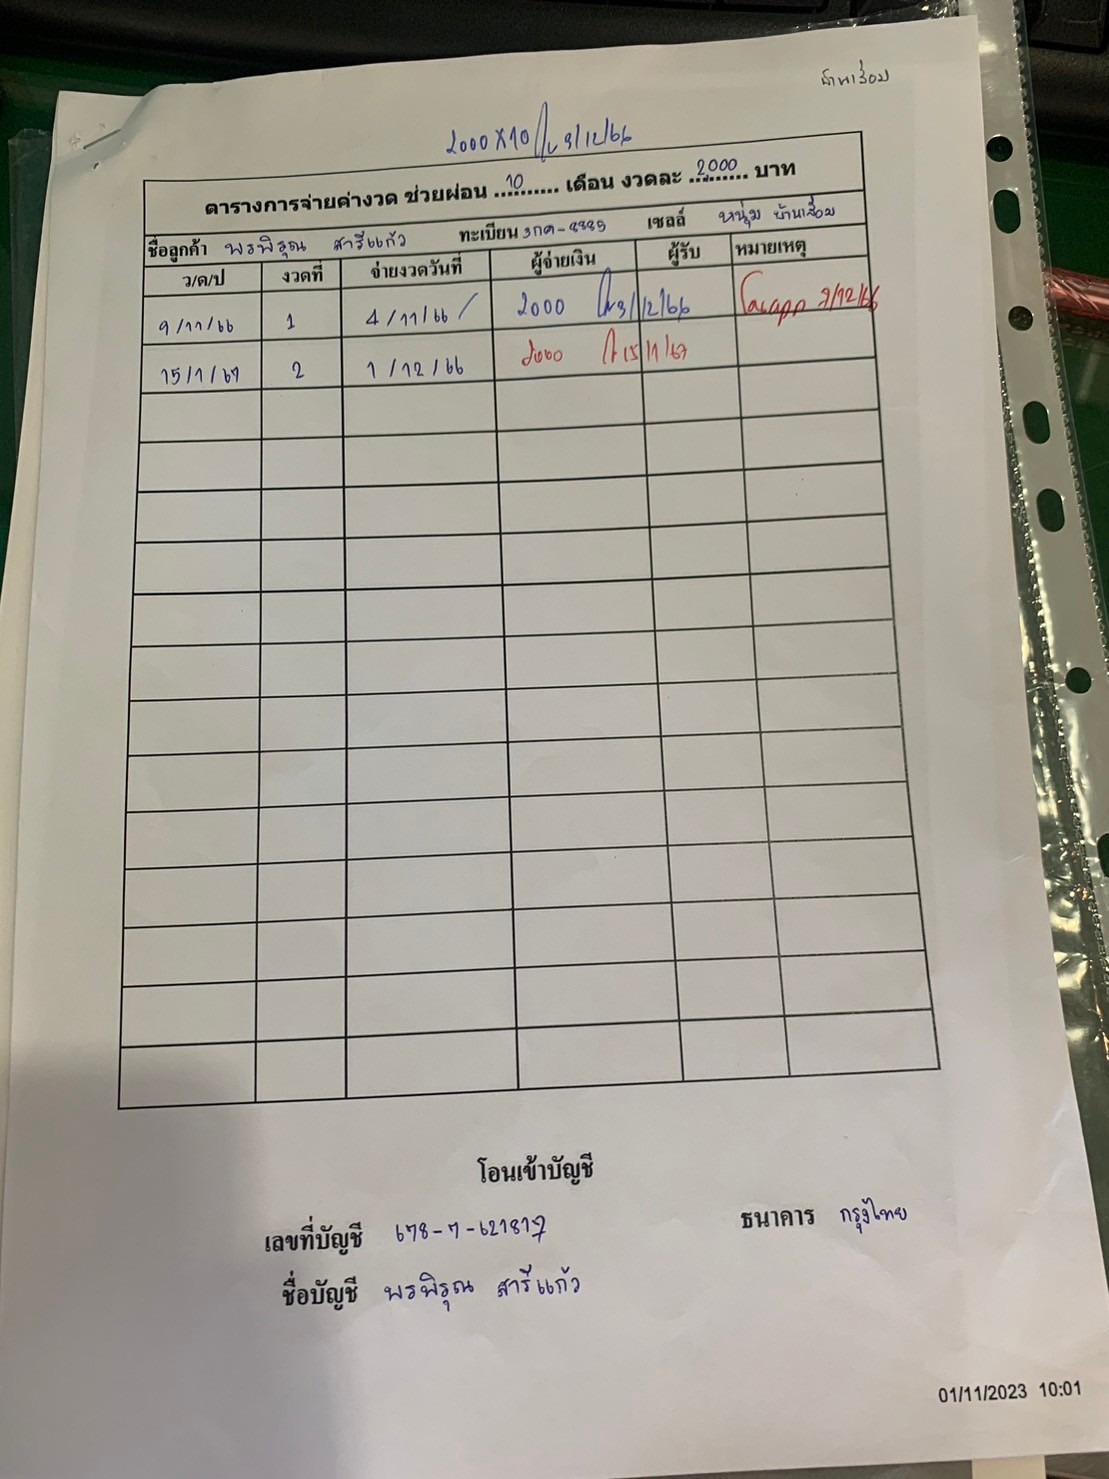 บ้านเลื่อม
2000 X 10 3/12/66
ตารางการจ่ายค่างวด ช่วยผ่อน ...10... เดือน งวดละ ...2000... บาท
ชื่อลูกค้า พรพิรุณ สารีแก้ว ทะเบียน เซลล์ หนุ่ม บ้านเลื่อม
ว/ด/ป งวดที่ จ่ายงวดวันที่ ผู้จ่ายเงิน ผู้รับ หมายเหตุ
9/11/66 1 4/11/66 2000 3/12/66
15/1/67 2 1/12/66 2000 15/1/67
โอนเข้าบัญชี
เลขที่บัญชี 678-7-62181-7 ธนาคาร กรุงไทย
ชื่อบัญชี พรพิรุณ สารีแก้ว
01/11/2023 10:01